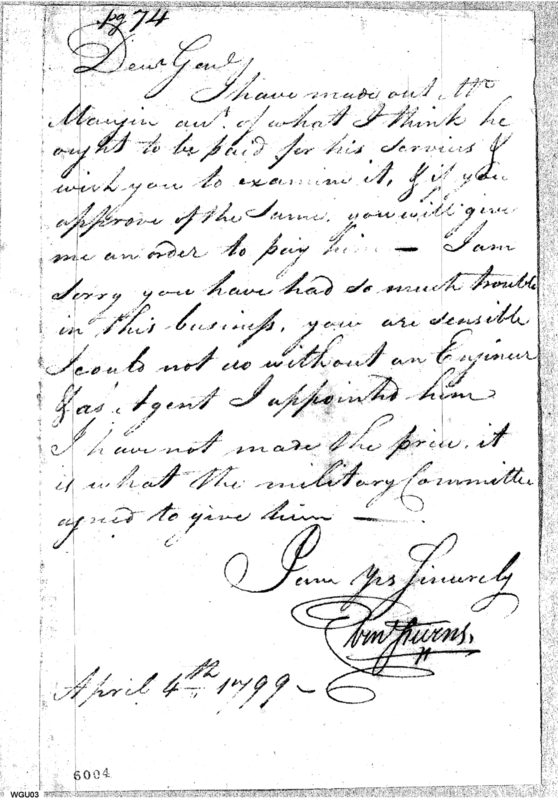 pg 74
Dear Genl
I have made out Mr
Mangin acct. of what I think he
ought to be paid for his services &
wish you to examine it, & if you
approve of the same. you will give
me an order to pay him — I am
sorry you have had so much trouble
in this business, you are sensible
I could not do without an Engineer
& as Agent I appointed him
I have not made the price. it
is what the military Committee
agreed to give him —
I am Yrs Sincerely
Eben Stevens.
April 4th 1799 —
6004
WGU03